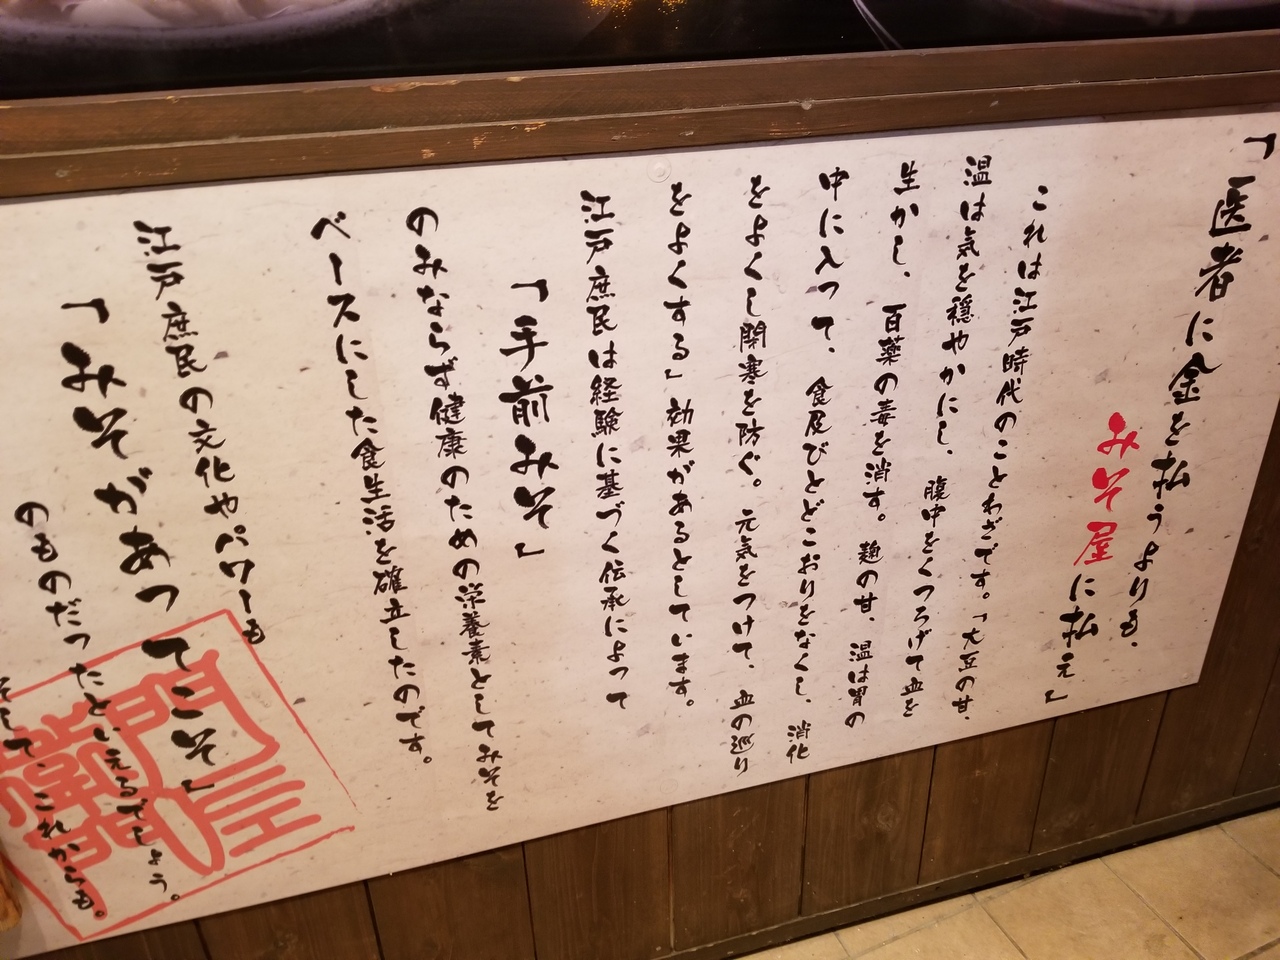 「医者に金を払うよりも、
みそ屋に払え」
これは江戸時代のことわざです。「大豆の甘、
温は気を穏やかにし、腹中をくつろげて血を
生かし、百薬の毒を消す。麹の甘、温は胃の
中に入って、食及びとどこおりをなくし、消化
をよくし閉塞を防ぐ。元気をつけて、血の巡り
をよくする」効果があるとしています。
江戸庶民は経験に基づく伝承によって
「手前みそ」
のみならず健康のための栄養素としてみそを
ベースにした食生活を確立したのです。
江戸庶民の文化やパワーも
「みそがあってこそ」
のものだったといえるでしょう。
そして、これからも。